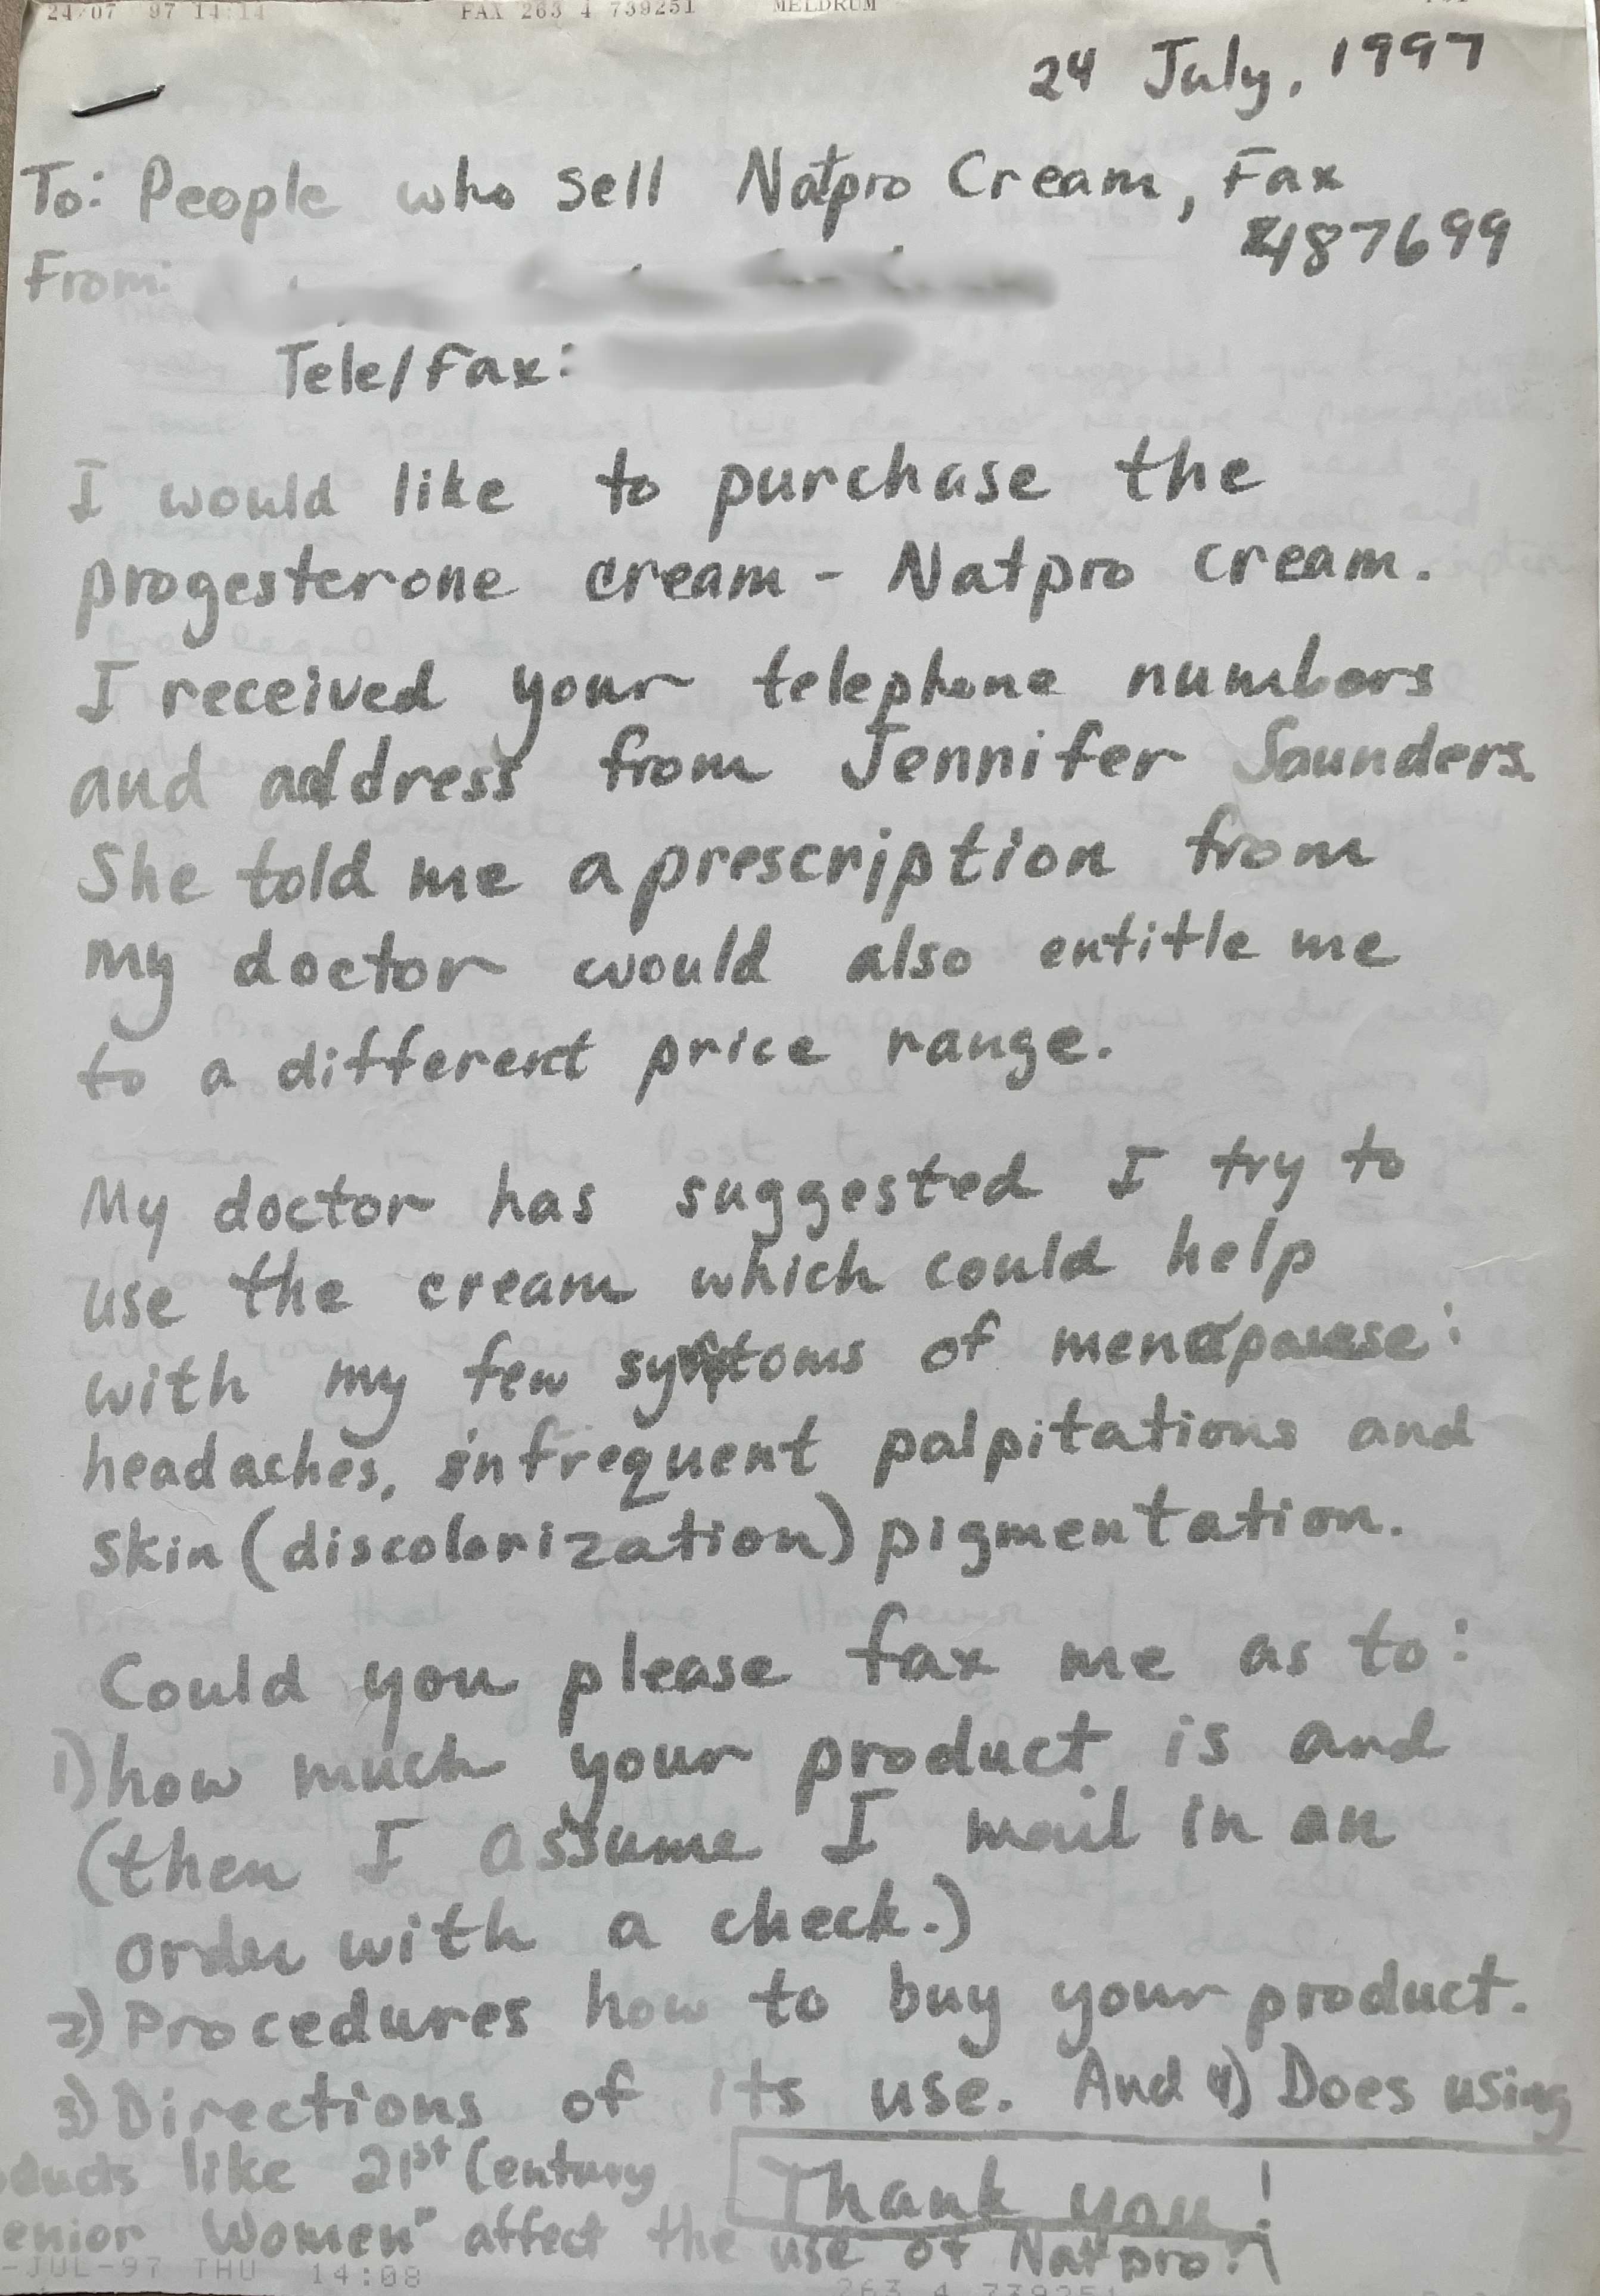 24/07 97 14:14 FAX 263 4 739251 MELDRUM
24 July, 1997
To: People who sell Natpro Cream, Fax
487699
From:
Tele/Fax:
I would like to purchase the
progesterone cream - Natpro cream.
I received your telephone numbers
and address from Jennifer Saunders.
She told me a prescription from
my doctor would also entitle me
to a different price range.
My doctor has suggested I try to
use the cream which could help
with my few symtoms of menopause:
headaches, infrequent palpitations and
skin (discolorization) pigmentation.
Could you please fax me as to:
1) how much your product is and
(then I assume I mail in an
order with a check.)
2) Procedures how to buy your product.
3) Directions of its use. And 4) Does using
ducts like 21st Century
enior Women" affect the use of Natpro?
Thank you!
-JUL-97 THU 14:08 263 4 739251